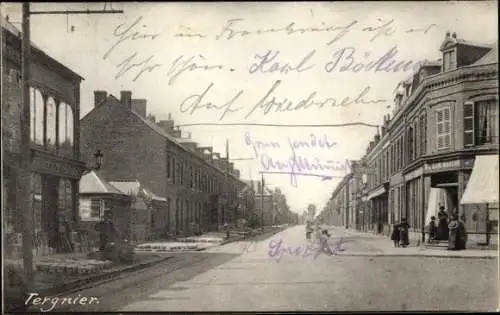 Hier in Frankreich ist es
sehr schön. Karl Böckem
Auf Wiedersehn
Gruß sendet
Tergnier.